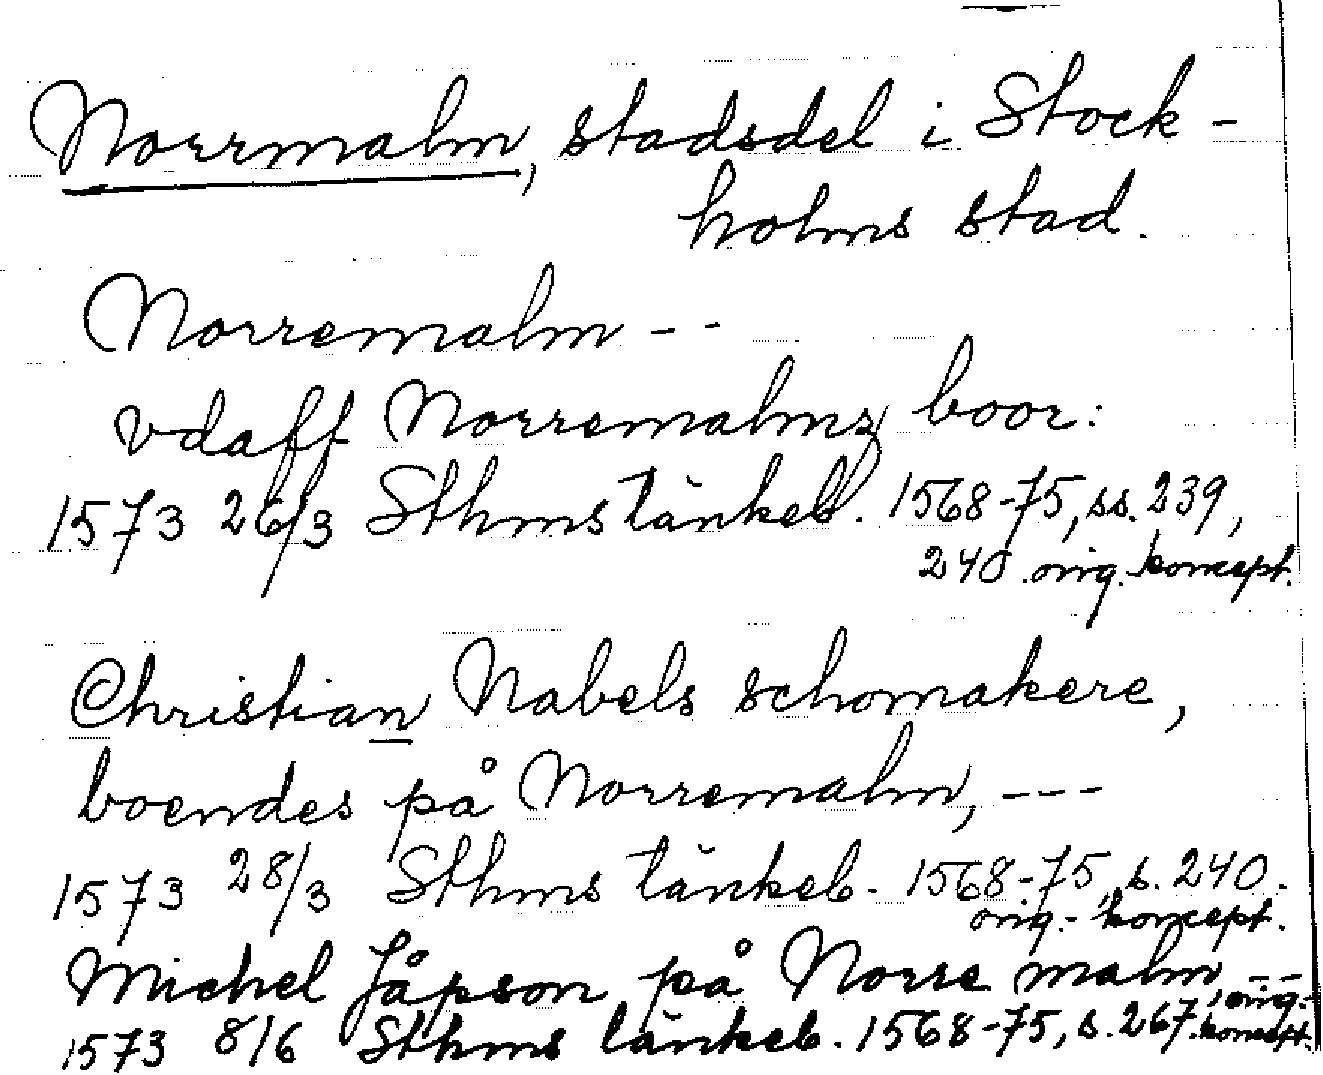 Norrmalm, stadsdel i Stock-
holms stad.
Norremalm --
vdaff Norremalmz boor:
1573 26/3 Sthms tänkeb. 1568-75, ss. 239,
240. orig.-koncept.
Christian Nabels schomakere,
boendes på Norremalm, ---
1573 28/3 Sthms tänkeb. 1568-75, s. 240.
orig.-koncept.
Michel Jåpson på Norre malm --
1573 8/6 Sthms tänkeb. 1568-75, s. 267, orig.-
koncept.